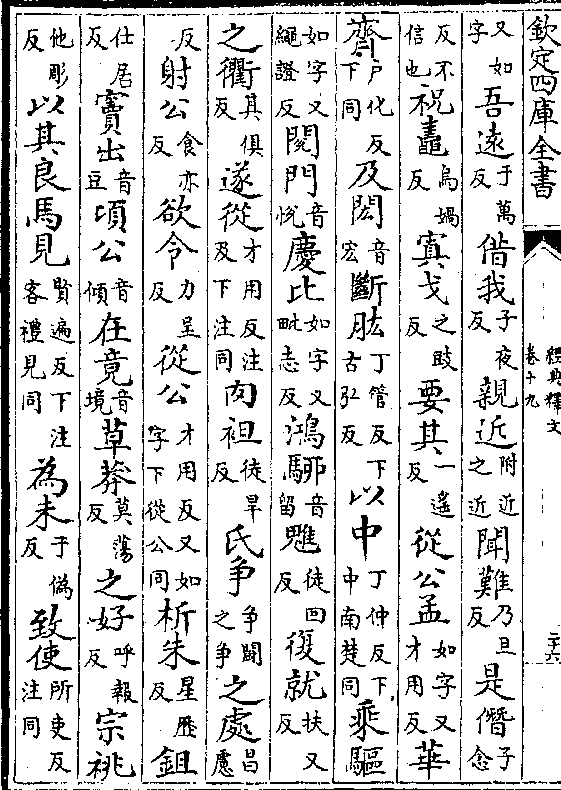 欽定四庫全書
經典釋文
卷十九
二十六
又如字吾遠于萬反借我子夜反親近附近之近聞難乃旦反是僭子念
反不信也祝鼃烏媧反寘戈之豉反要其一遙反從公孟如字又才用反華
齊戶化反下同及閎音宏斷肱丁管反下古弘反以中丁仲反下中南楚同乘驅
如字又繩證反閱門音悅慶比如字又毗志反鴻駵音留魋徒回反復就扶又反
之衢其俱反遂從才用反注及下注同肉袒徒旱反氏爭爭鬭之爭之處昌慮
反射公食亦反欲令力呈反從公才用反又如字下從公同析朱星歷反鉏
仕居反竇出音豆頃公音傾在竟音境草莽莫蕩反之好呼報反宗祧
他彫反以其良馬見賢遍反下注客禮見同為未于偽反致使所吏反注同